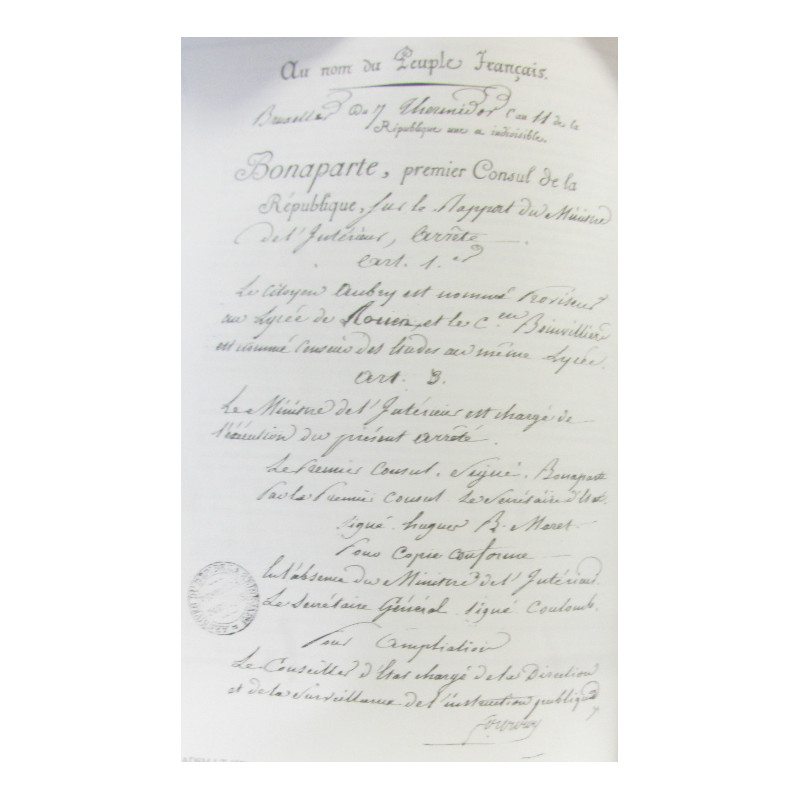 Au nom du Peuple Français.
Bruxelles Du 7 Thermidor l'an 11 de la
République une et indivisible.
Bonaparte, premier Consul de la
République, sur le Rapport du Ministre
de l'Intérieur, arrête
art. 1.er
Le Citoyen Aubry est nommé Proviseur
au Lycée de Rouen, et le C.en Boinvilliers
est nommé censeur des études au même Lycée.
art. 3.
Le Ministre de l'Intérieur est chargé de
l'exécution du présent arrêté.
Le Premier Consul. Signé. Bonaparte
Par le Premier Consul Le Secrétaire d'Etat.
signé hugues B. Maret
Pour Copie Conforme
En l'absence du Ministre de l'Intérieur.
Le Secrétaire Général signé Coulomb.
Pour Ampliation
Le Conseiller d'Etat chargé de la Direction
et de la surveillance de l'instruction publique
Fourcroy